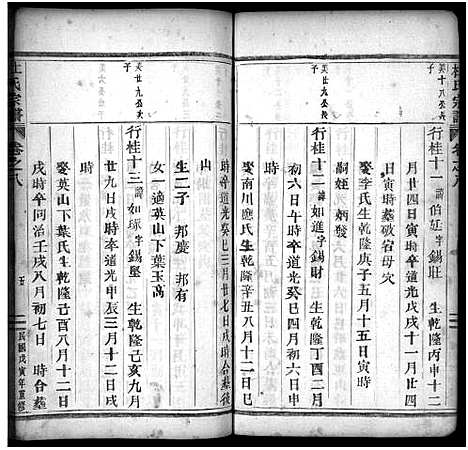 杜氏宗譜
英十八公次子
行桂十一 諱伯廷 字錫莊 生乾隆丙申十二
月廿四日寅時卒道光戊戌十一月廿四
日寅時時葬破宕母穴
娶李氏生乾隆庚子五月十五日寅時
嗣姪 炳發
英廿九公長子
行桂十二 諱如進 字錫財 生乾隆丁酉二月
初六日午時卒道光癸巳四月初六日申
時
娶南川應氏生乾隆辛丑八月十二日
時卒道光癸巳三月廿七日 時合墓後
山
生二子 邦慶 邦有
女一 適英山下葉玉高
英廿九公次子
行桂十三 諱如球 字錫堅 生乾隆己亥九月
廿九日戌時卒道光甲辰三月十二日戌
時
娶英山下葉氏生乾隆己酉八月十二日
戌時卒同治壬戌八月初七日 時合墓
杜氏宗譜
卷之八
五
民國戊寅年重修